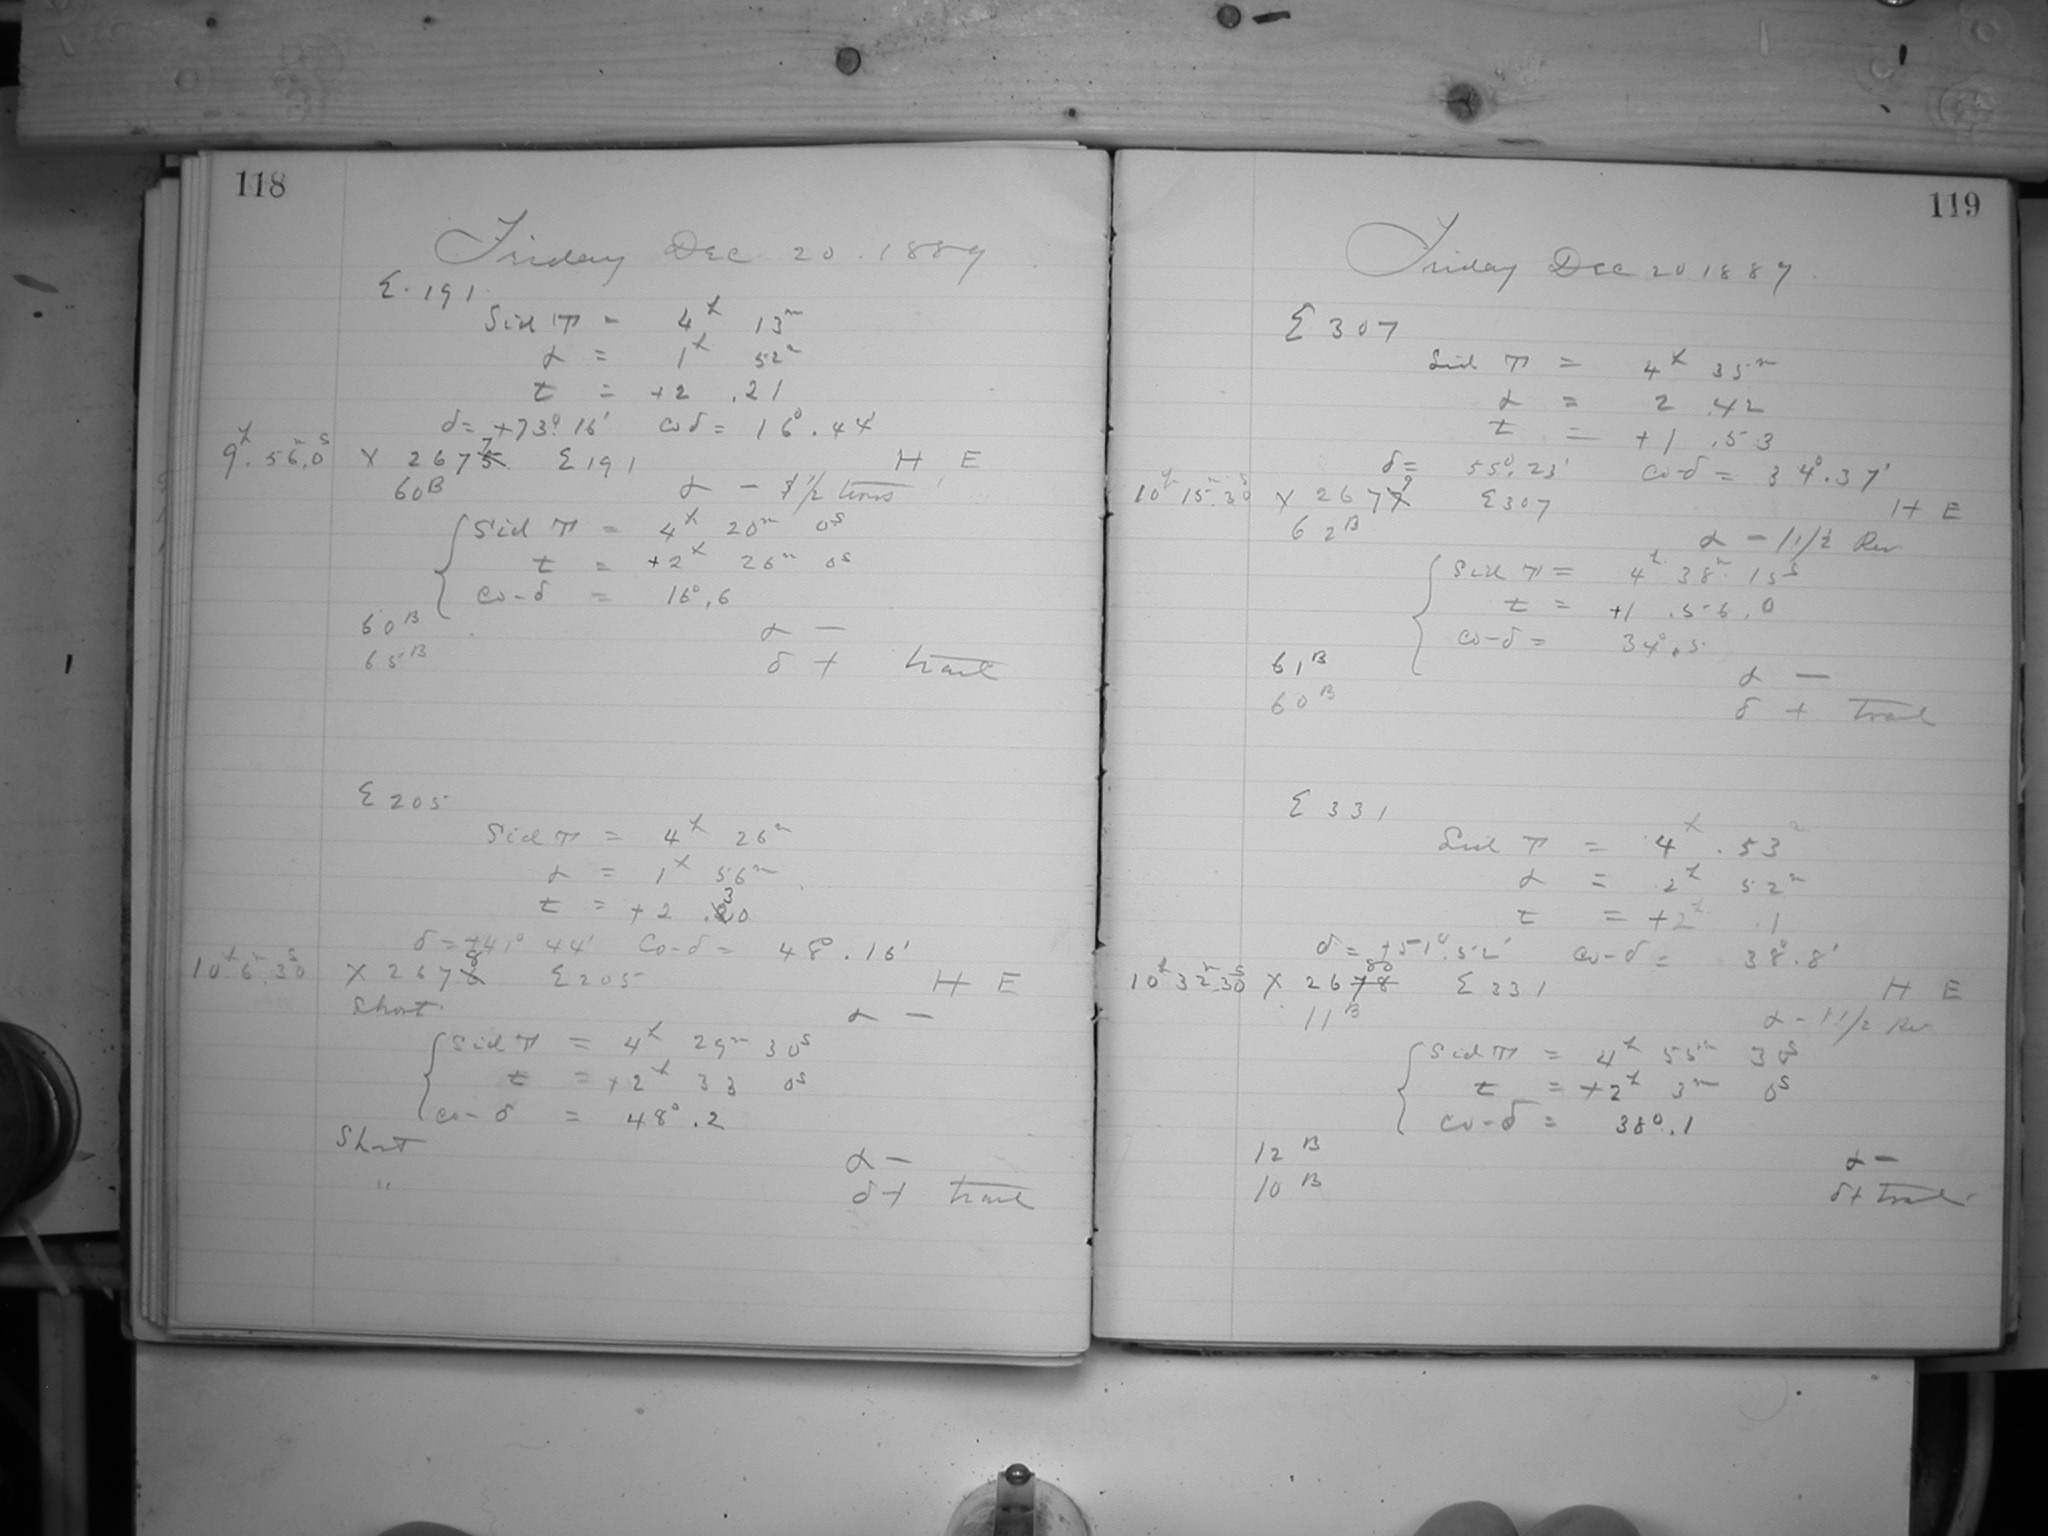 118
Friday Dec. 20. 1889
Σ. 191
Sid T = 4h 13m
α = 1h 52m
t = +2 .21
δ = +73° 16' co δ = 16°.44'
9h.56m.0s X 2677 Σ191 H E
60B α - 1/2 turns
Sid T = 4h 20m 0s
t = +2h 26m 0s
co-δ = 16°.6
60B α -
65B δ + trail
Σ 205
Sid T = 4h 26m
α = 1h 56m
t = +2 .30
δ = +41° 44' Co-δ = 48°.16'
10h 6m 30s X 2678 Σ205 H E
Short α -
Sid T = 4h 29m 30s
t = +2h 33 0s
co-δ = 48°.2
Short α -
" δ + trail
119
Friday Dec 20 1889.
Σ 307
Sid T = 4h 35m
α = 2 .42
t = +1 .53
δ = 55°.23' co-δ = 34°.37'
10h 15m 30s X 2679 Σ307 H E
62B α - 1 1/2 Rev
Sid T = 4h 38m 15s
t = +1 .56.0
co-δ = 34°.5
61B α -
60B δ + trail
Σ 331
Sid T = 4h.53m
α = 2h 52m
t = +2h .1
δ = +51°.52' co-δ = 38°.8'
10h 32m 30s X 2680 Σ 331 H E
11B α - 1 1/2 Rev
Sid T = 4h 55m 30s
t = +2h 3m 0s
co-δ = 38°.1
12 B α -
10 B δ + trail